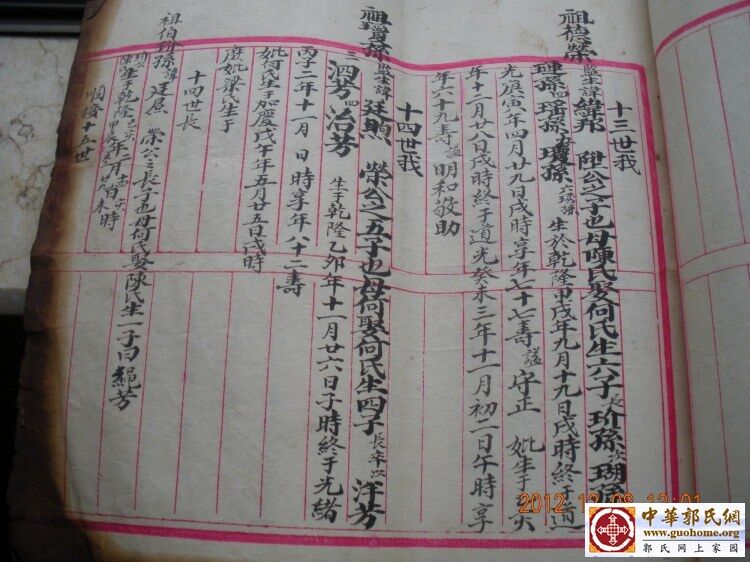 十三世我
祖德榮監生諱緯邦 陞公之子也母陳氏娶何氏生六子長玠孫次瑚孫
璉孫四瑨孫五瓊孫六 生於乾隆甲戌年九月十九日戌時終于道
光庚寅年四月廿九日戌時享年七十七壽謚守正 妣生于 癸亥
年十二月廿八日戌時終于道光癸未三年十一月初二日午時享
年六十九壽謚明和敬助
十四世我
祖瑨孫監生諱廷煦 榮公之五子也母何娶何氏生四子長 次 洋芳
三泗芳四治芳 生于乾隆乙卯年十一月廿六日子時終于光緒
丙子二年十一月 日時享年八十二壽
妣何氏生于加慶戊午年五月廿五日戌時
庶妣梁氏生于
十四世長
祖伯玠孫諱廷 榮公之長子也母何氏娶陳氏生一子曰繩芳
生于乾隆 年二月 日未時
順接十五世
2012 12 08 13:01
中華郭氏網
www.guohome.org
郭氏网上家园